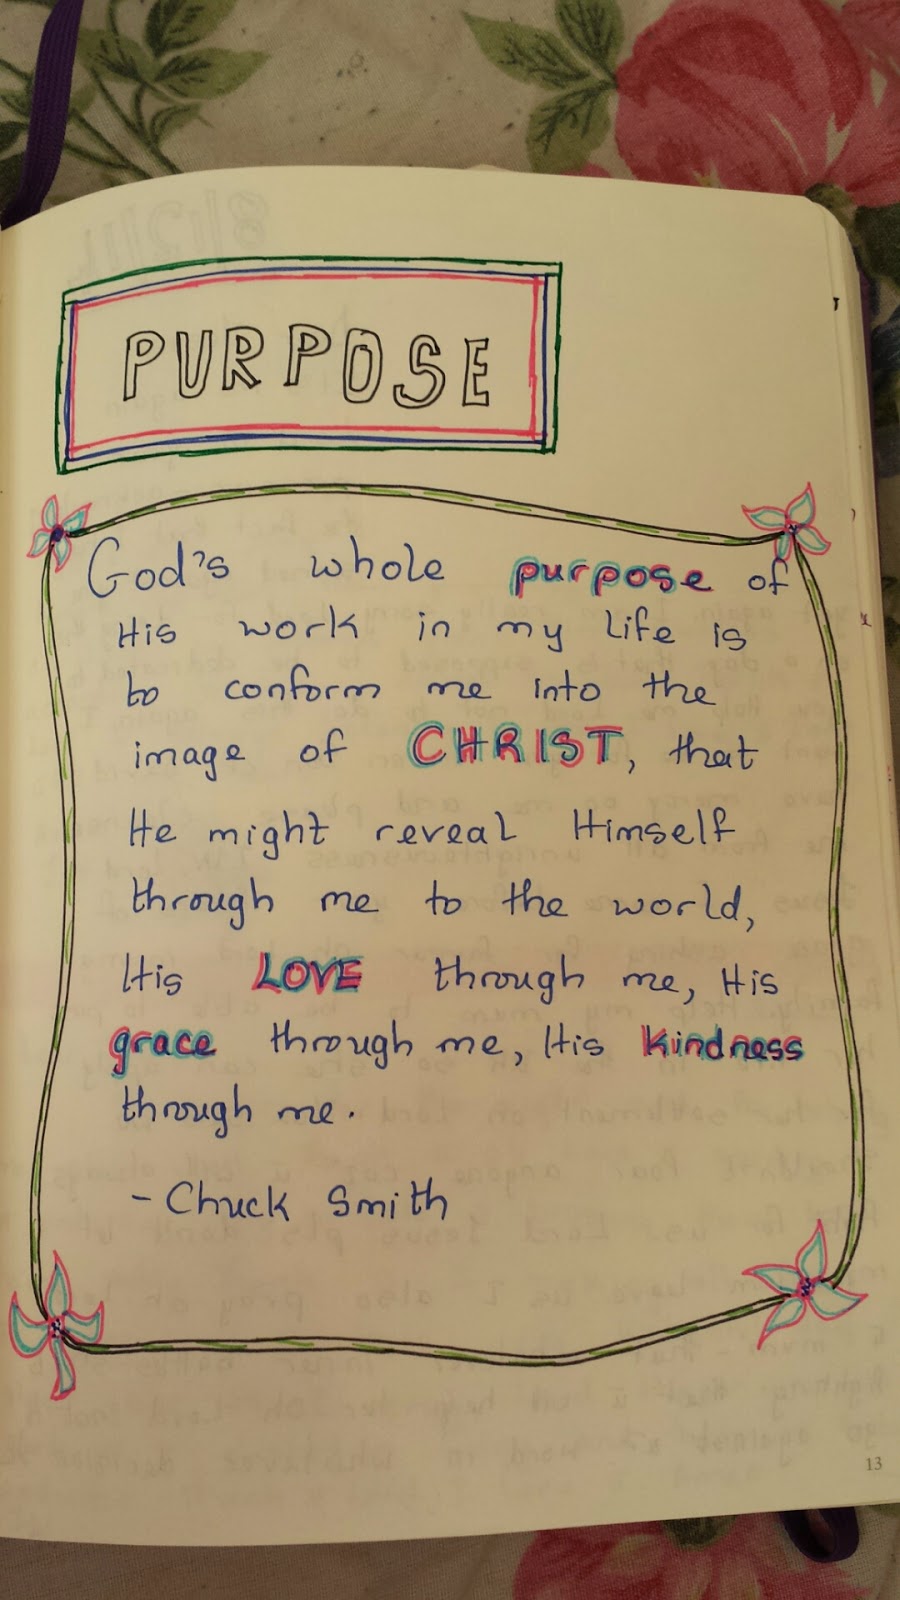 PURPOSE
God's whole purpose of
His work in my life is
to conform me into the
image of CHRIST, that
He might reveal Himself
through me to the world,
His LOVE through me, His
grace through me, His kindness
through me.
- Chuck Smith
13